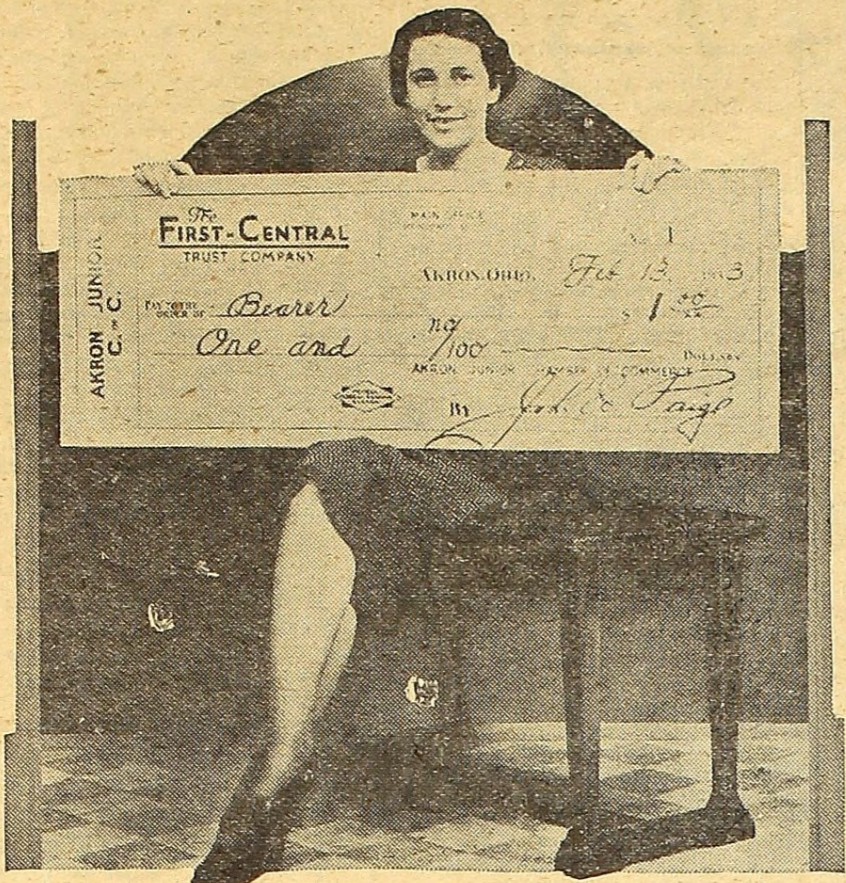 AKRON JUNIOR
C. of C.
The
FIRST-CENTRAL
TRUST COMPANY
MAIN OFFICE
No. 1
AKRON, OHIO, Feb 13, 1933
PAY TO THE
ORDER OF Bearer $1 00
One and no/100 DOLLARS
AKRON JUNIOR CHAMBER OF COMMERCE
BY Paige